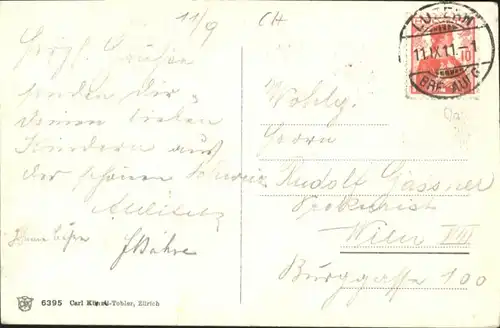 11/9 CH
LUZERN
11.IX.11.-1
BRF. AUFG.
10
Herzl. Grüße
senden dir,
deinen lieben
Kindern aus
der schönen Schweiz
Wohlg.
Herrn
Rudolf Gassner
Prokurist
Wien VIII
Burggasse 100
6395 Carl Künzli-Tobler, Zürich